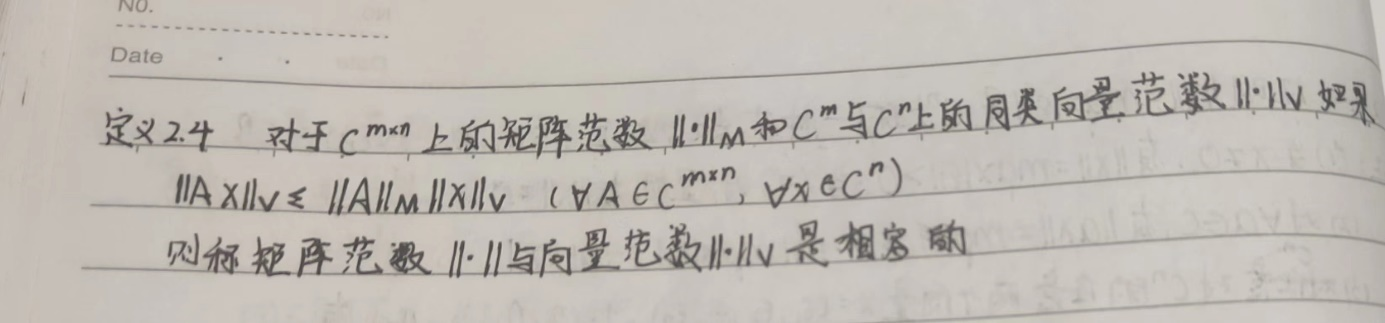 No.
Date
定义2.4 对于 C^{m×n} 上的矩阵范数 ||·||_M 和 C^m 与 C^n 上的同类向量范数 ||·||_V 如果
||AX||_V ≤ ||A||_M ||X||_V (∀A∈C^{m×n}, ∀x∈C^n)
则称矩阵范数 ||·|| 与向量范数 ||·||_V 是相容的